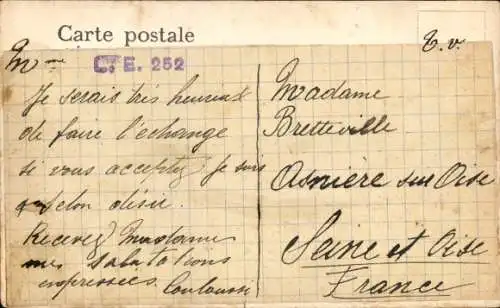 Carte postale
T. v.
C. E. 252
Mme
Je serais très heureux
de faire l'échange
si vous acceptez je suis
selon désir
Recevez Madame
mes salutations
empressées
Madame
Bretteville
Asnière sur Oise
Seine et Oise
France